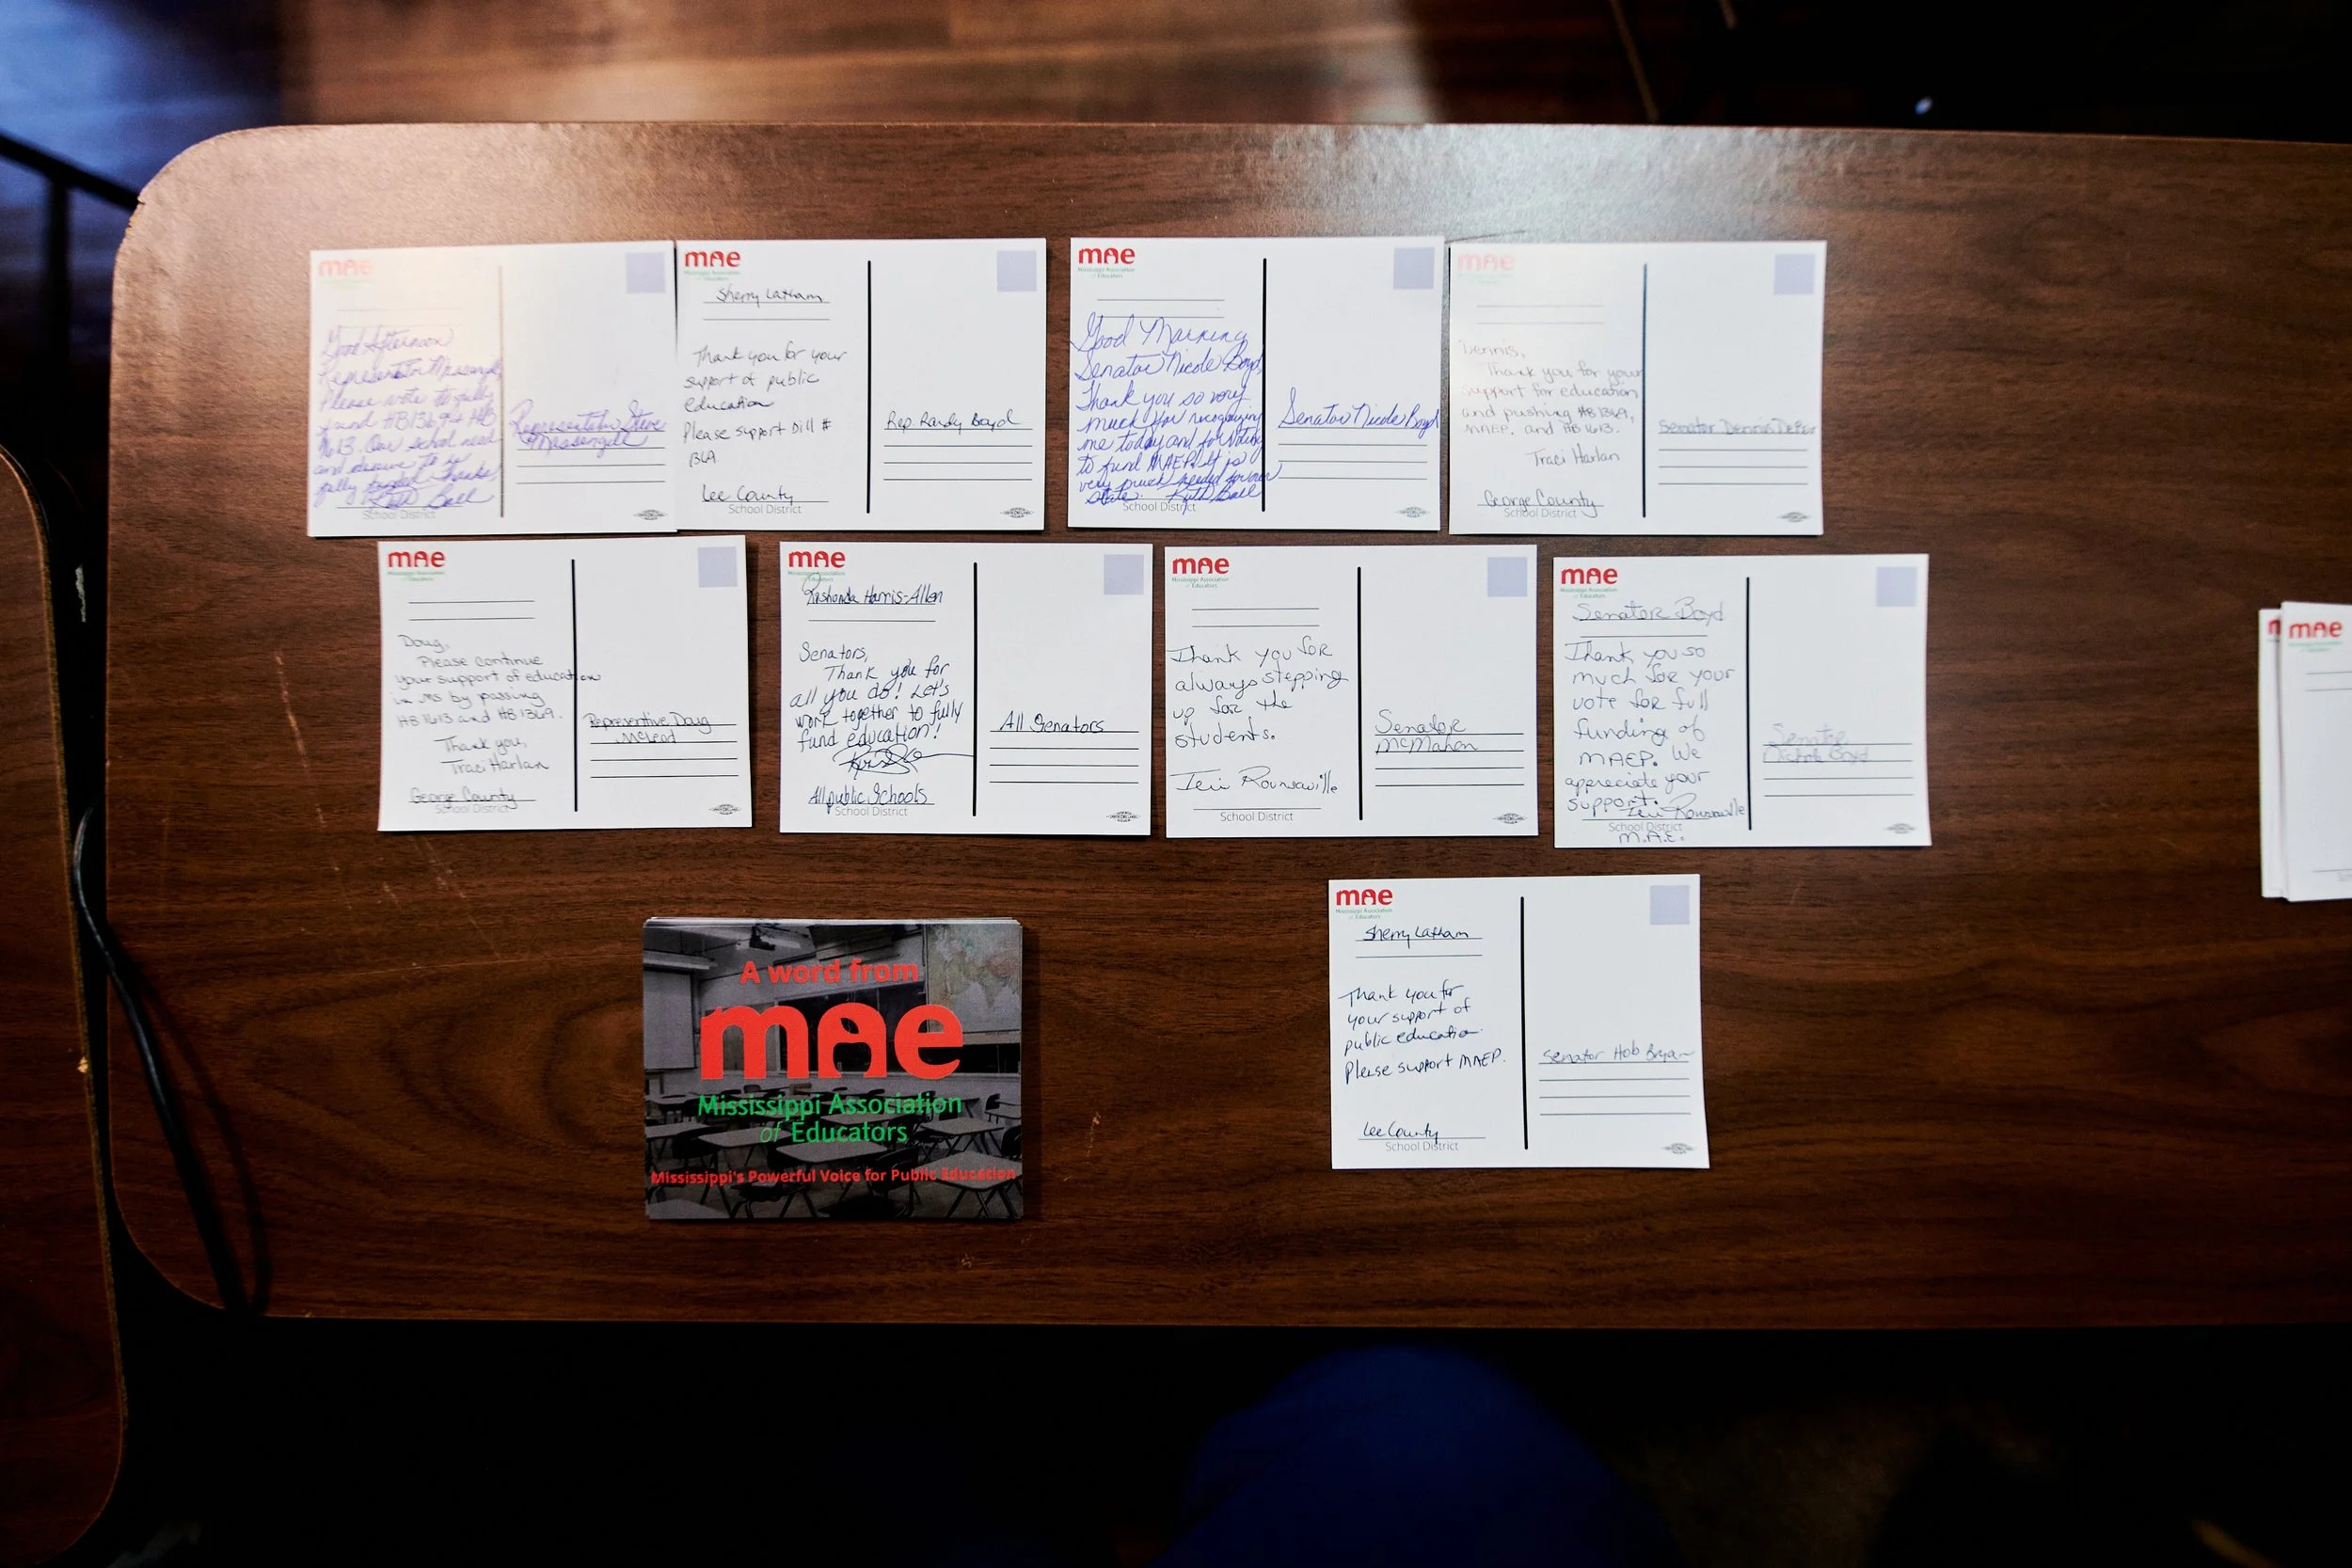 mae
Good Afternoon
Representative
Please vote to fully
fund HB1369 + HB
1613. Our school need
and deserve to be
fully funded. Thanks,
Ruth Ball
School District
Representative Steve
Massengill
mae
Mississippi Association
of Educators
Sherry Latham
Thank you for your
support of public
education
Please support Bill #
Lee County
School District
Rep. Randy Boyd
mae
Mississippi Association
of Educators
Good Morning
Senator Nicole Boyd,
Thank you so very
much for recognizing
me today and for voting
to fund MAEP. It is
very much needed for our
state. Ruth Ball
School District
Senator Nicole Boyd
mae
Dennis,
Thank you for your
support for education
and pushing HB 1369,
MAEP. and HB 1613.
Traci Harlan
George County
School District
Senator Dennis DeBar
mae
Mississippi Association
of Educators
Doug,
Please continue
your support of education
in MS by passing
HB 1613 and HB 1369.
Thank you,
Traci Harlan
George County
School District
Representive Doug
McLeod
mae
Mississippi Association
of Educators
Kashonda Harris-Allen
Senators,
Thank you for
all you do! Let's
work together to fully
fund education!
All public Schools
School District
All Senators
mae
Mississippi Association
of Educators
Thank you for
always stepping
up for the
students.
Teri Rounsaville
School District
Senator
McMahan
mae
Mississippi Association
of Educators
Senator Boyd
Thank you so
much for your
vote for full
funding of
MAEP. We
appreciate your
support.
Teri Rounsaville
School District
M.A.E.
Senator
Nichole Boyd
mae
A word from
mae
Mississippi Association
of Educators
Mississippi's Powerful Voice for Public Education
mae
Mississippi Association
of Educators
Sherry Latham
Thank you for
your support of
public education.
Please support MAEP.
Lee County
School District
Senator Hob Bryan